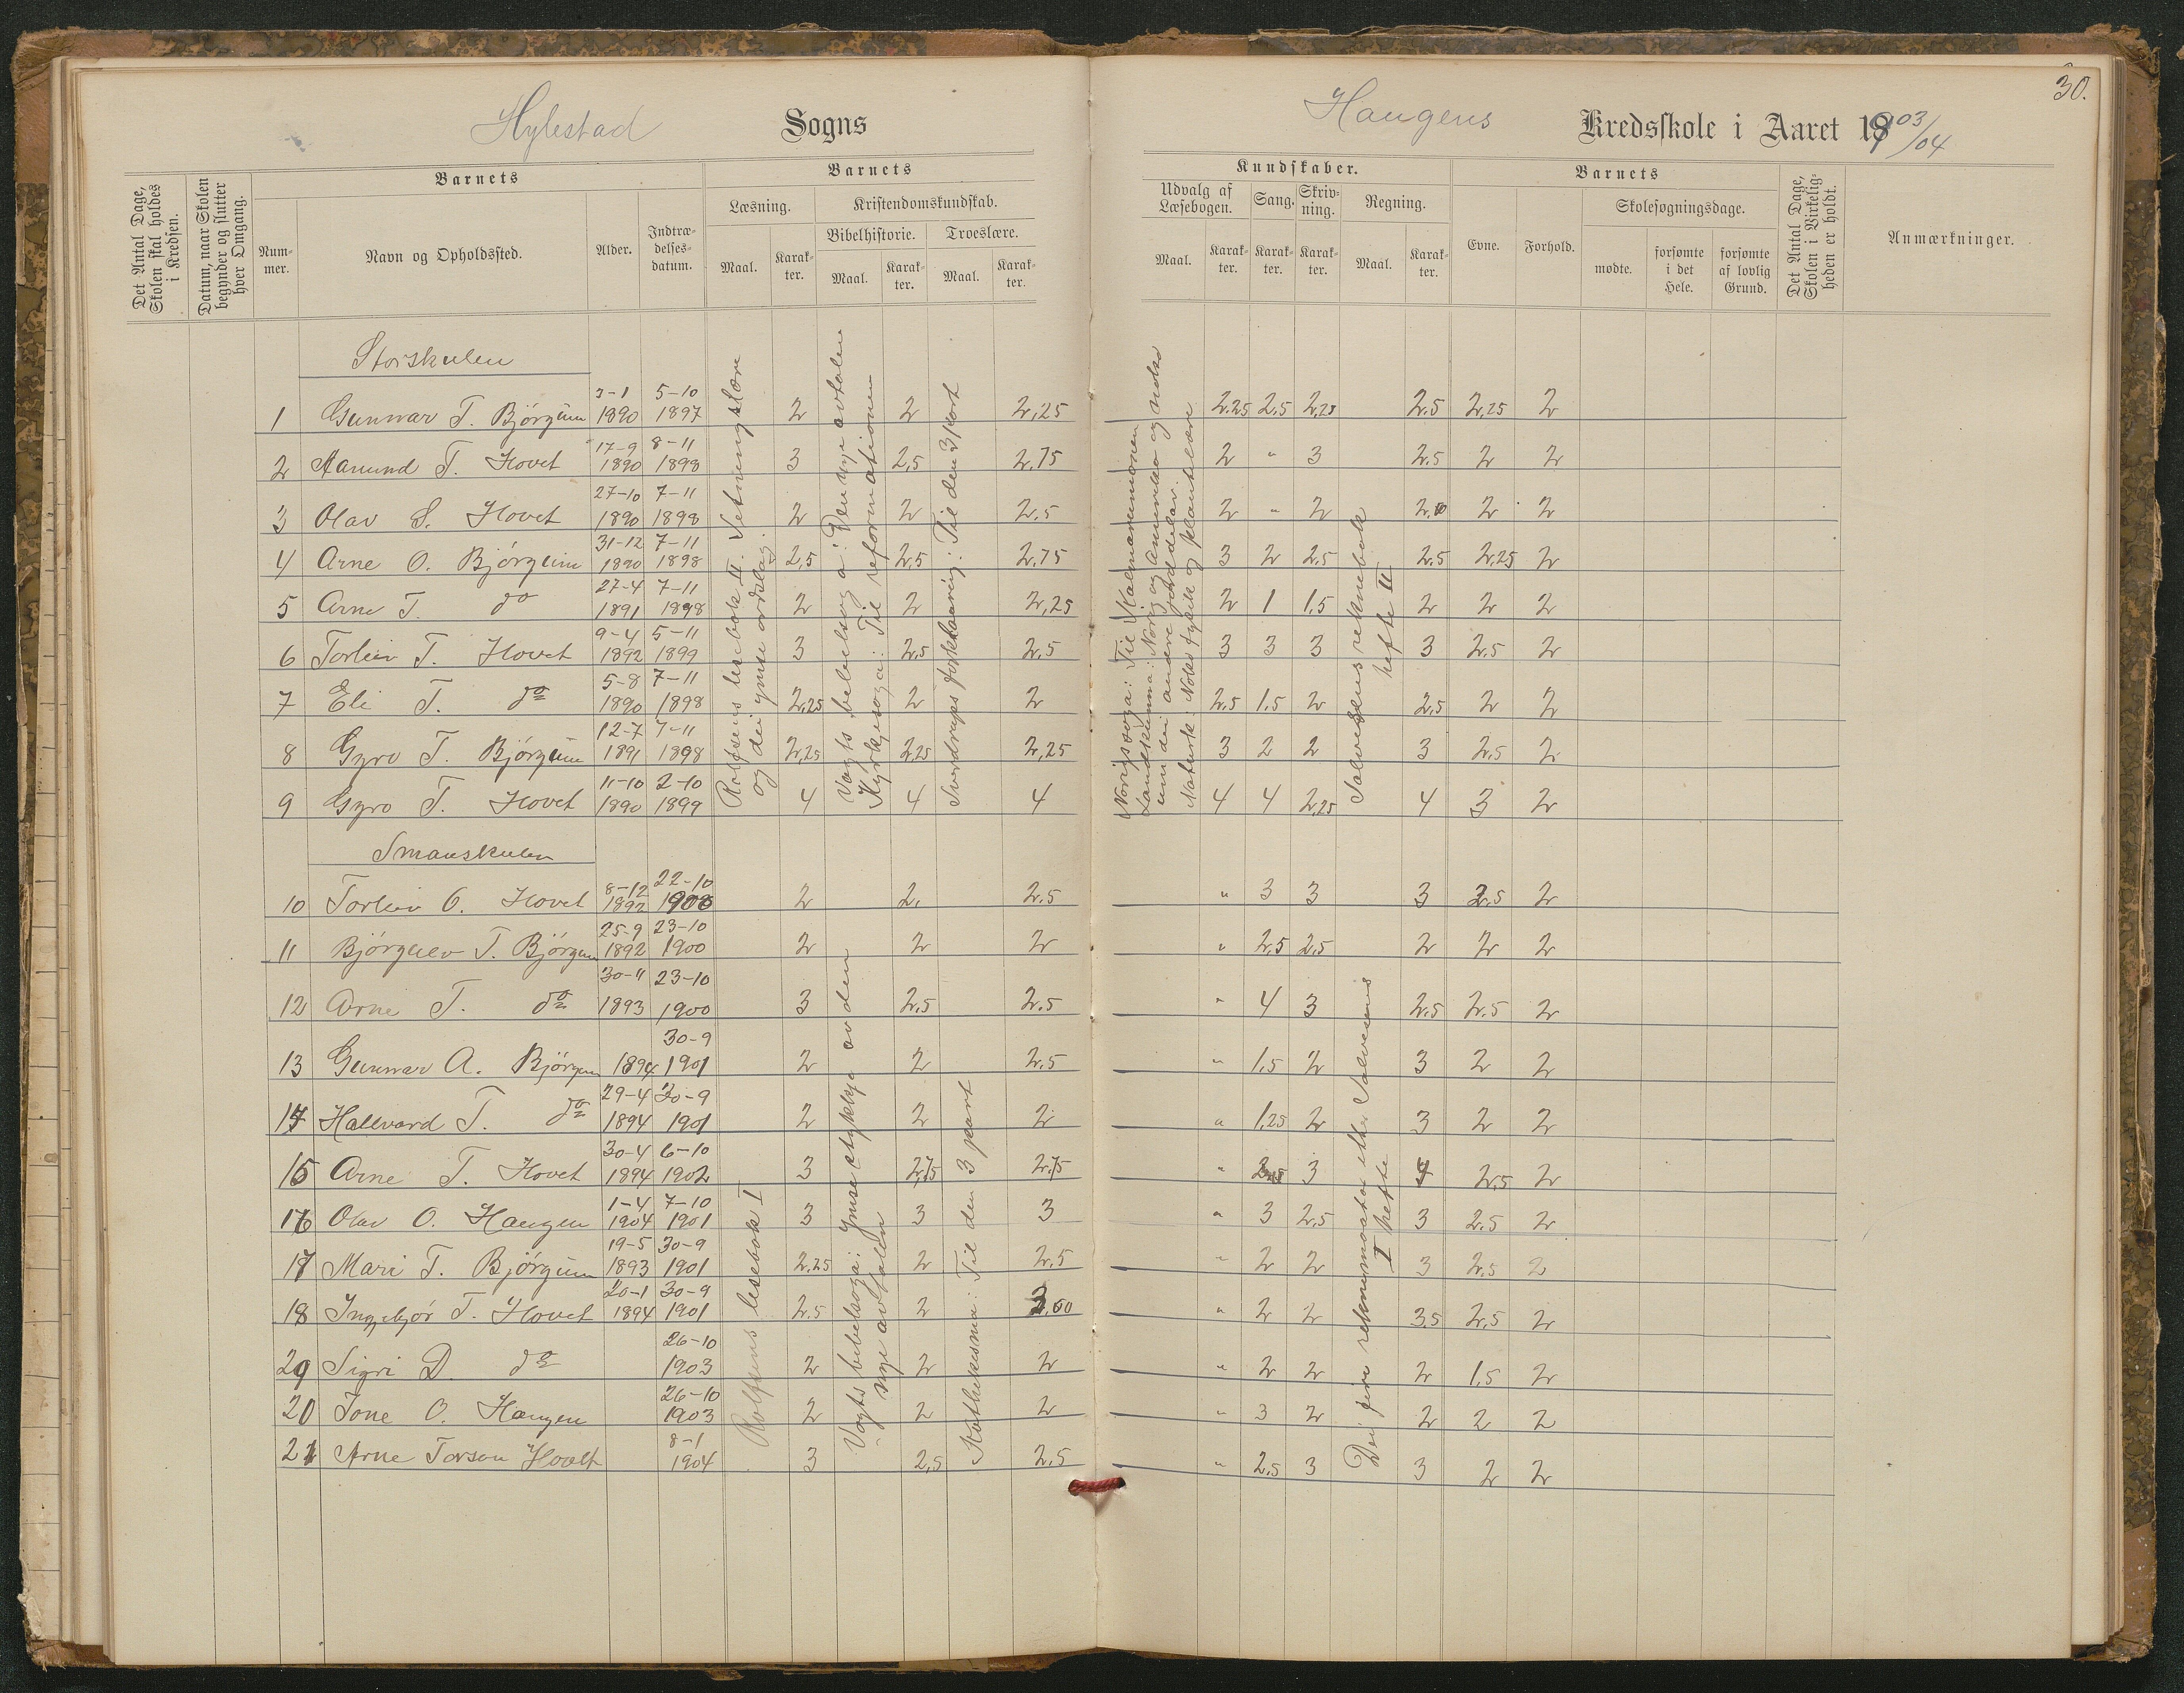 30.
Hylestad Sogns
Haugens Kredsskole i Aaret 1903/04
Det Antal Dage, Skolen skal holdes i Kredsen.
Datum, naar Skolen begynder og slutter hver Omgang.
Barnets
Nummer.
Navn og Opholdssted.
Alder.
Indtrædelsesdatum.
Barnets
Læsning.
Maal.
Karakter.
Kristendomskundskab.
Bibelhistorie.
Maal.
Karakter.
Troeslære.
Maal.
Karakter.
Kundskaber.
Udvalg af Læsebogen.
Maal.
Karakter.
Sang.
Karakter.
Skrivning.
Karakter.
Regning.
Maal.
Karakter.
Barnets
Evne.
Forhold.
Skolesøgningsdage.
mødte.
forsømte i det Hele.
forsømte af lovlig Grund.
Det Antal Dage, Skolen i Virkeligheden er holdt.
Anmærkninger.
Storskulen
1 Gunnar T. Björgum 3-1 1890 5-10 1897 2 2 2,25 2,25 2,5 2,25 2,5 2,25 2
2 Aamund T. Hovet 17-9 1890 8-11 1898 3 2,5 2,75 2 " 3 2,5 2 2
3 Olav S. Hovet 27-10 1890 7-11 1898 2 2 2,5 2 " 2 2 2
4 Arne O. Björgum 31-12 1890 7-11 1898 2,5 2,5 2,75 3 2 2,5 2,5 2,25 2
5 Arne T. do 27-4 1891 7-11 1898 2 2 2,25 2 1 1,5 2 2 2
6 Torleiv T. Hovet 9-4 1892 5-11 1899 3 2,5 2,5 3 3 3 3 2,5 2
7 Eli T. do 5-8 1890 7-11 1898 2,25 2 2 2,5 1,5 2 2,5 2 2
8 Gyro T. Björgum 12-7 1891 7-11 1898 2,25 2,25 2,25 3 2 2 3 2,5 2
9 Gyro T. Hovet 11-10 1890 2-10 1899 4 4 4 4 4 2,25 4 3 2
Rolfsens lesebok II. Retningslære
og dei ymse ordslag.
Vogts bibelsoga: Den nye avtalen
Kyrkjesoga: Til reformationen
Sverdrups forklaaring: Til den 3 part
Norigssoga: Til Kalmarunionen
Landkunna: Norig og Amerika og noko
um dei andre jorddelar.
Naturk. Noko fysikk og plantelære
Salvesens reknebok
hefte II
Smaaskulen
10 Torleiv O. Hovet 8-12 1892 22-10 1900 2 2. 2,5 " 3 3 3 2,5 2
11 Björgulv T. Björgum 25-9 1892 23-10 1900 2 2 2 " 2,5 2,5 2 2 2
12 Arne T. do 30-11 1893 23-10 1900 3 2,5 2,5 " 4 3 2,5 2,5 2
13 Gunnar A. Björgum 1894 30-9 1901 2 2 2,5 " 1,5 2 3 2 2
14 Hallvard T. do 29-4 1894 30-9 1901 2 2 2 " 1,25 2 3 2 2
15 Arne T. Hovet 30-4 1894 6-10 1902 3 2,75 2,75 " 3 4 2,5 2
16 Olav O. Haugen 1-4 1904 7-10 1901 3 3 3 " 3 2,5 3 2,5 2
17 Mari T. Björgum 19-5 1893 30-9 1901 2,25 2 2,5 " 2 2 3 2,5 2
18 Ingebjör T. Hovet 20-1 1894 30-9 1901 2,5 2 " 2 2 3,5 2,5 2
29 Sigri D. do 26-10 1903 2 2 2 " 2 2 2 1,5 2
20 Tone O. Haugen 26-10 1903 2 2 2 " 3 2 2 2 2
21 Arne Torson Hovet 8-1 1904 3 2,5 2,5 " 2,5 3 3 2 2
Rolfsens lesebok I
Vogts bibelsoga: Ymse stykkje av den
nye avtalen
Kathekesma: Til den 3 part
Dei fire etter Salvesens
I hefte